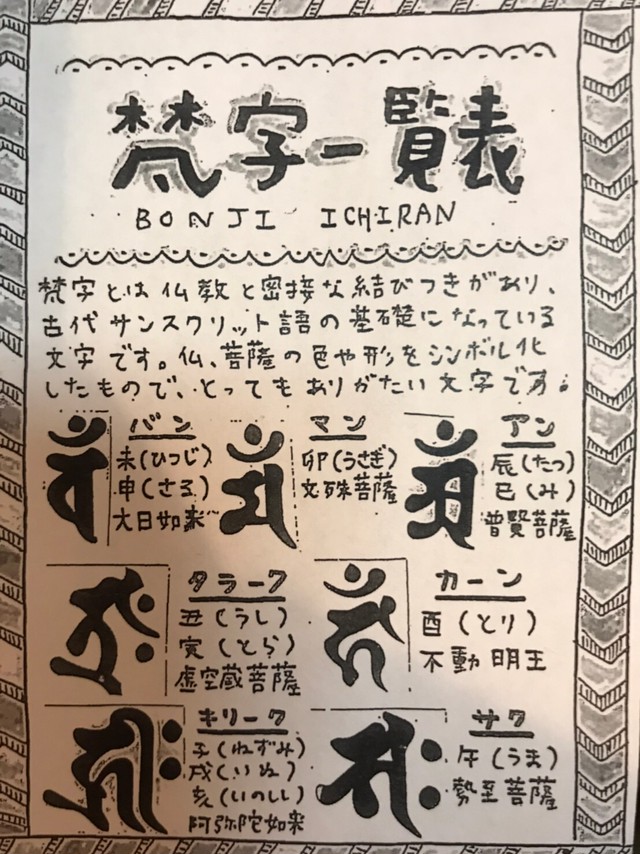 梵字一覧表
BONJI ICHIRAN
梵字とは仏教と密接な結びつきがあり、
古代サンスクリット語の基礎になっている
文字です。仏、菩薩の色や形をシンボル化
したもので、とってもありがたい文字です。
バン
未(ひつじ)
申(さる)
大日如来
マン
卯(うさぎ)
文殊菩薩
アン
辰(たつ)
巳(み)
普賢菩薩
タラーク
丑(うし)
寅(とら)
虚空蔵菩薩
カーン
酉(とり)
不動明王
キリーク
子(ねずみ)
戌(いぬ)
亥(いのしし)
阿弥陀如来
サク
午(うま)
勢至菩薩